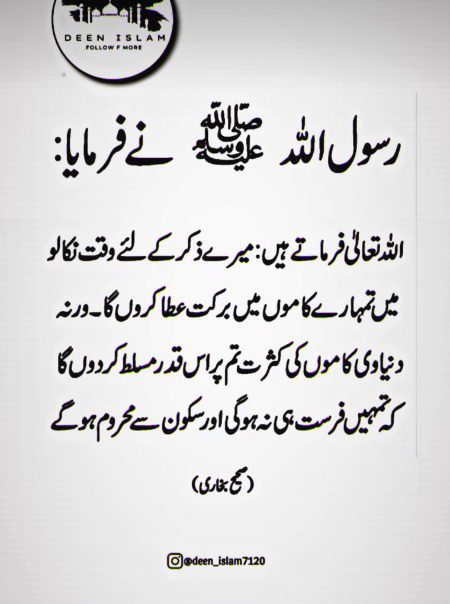 DEEN ISLAM
FOLLOW F MORE
رسول اللہ ﷺ نے فرمایا:
اللہ تعالیٰ فرماتے ہیں: میرے ذکر کے لئے وقت نکالو
میں تمہارے کاموں میں برکت عطا کروں گا۔ ورنہ
دنیاوی کاموں کی کثرت تم پر اس قدر مسلط کر دوں گا
کہ تمہیں فرست ہی نہ ہوگی اور سکون سے محروم ہو گے
(صحیح بخاری)
@deen_islam7120